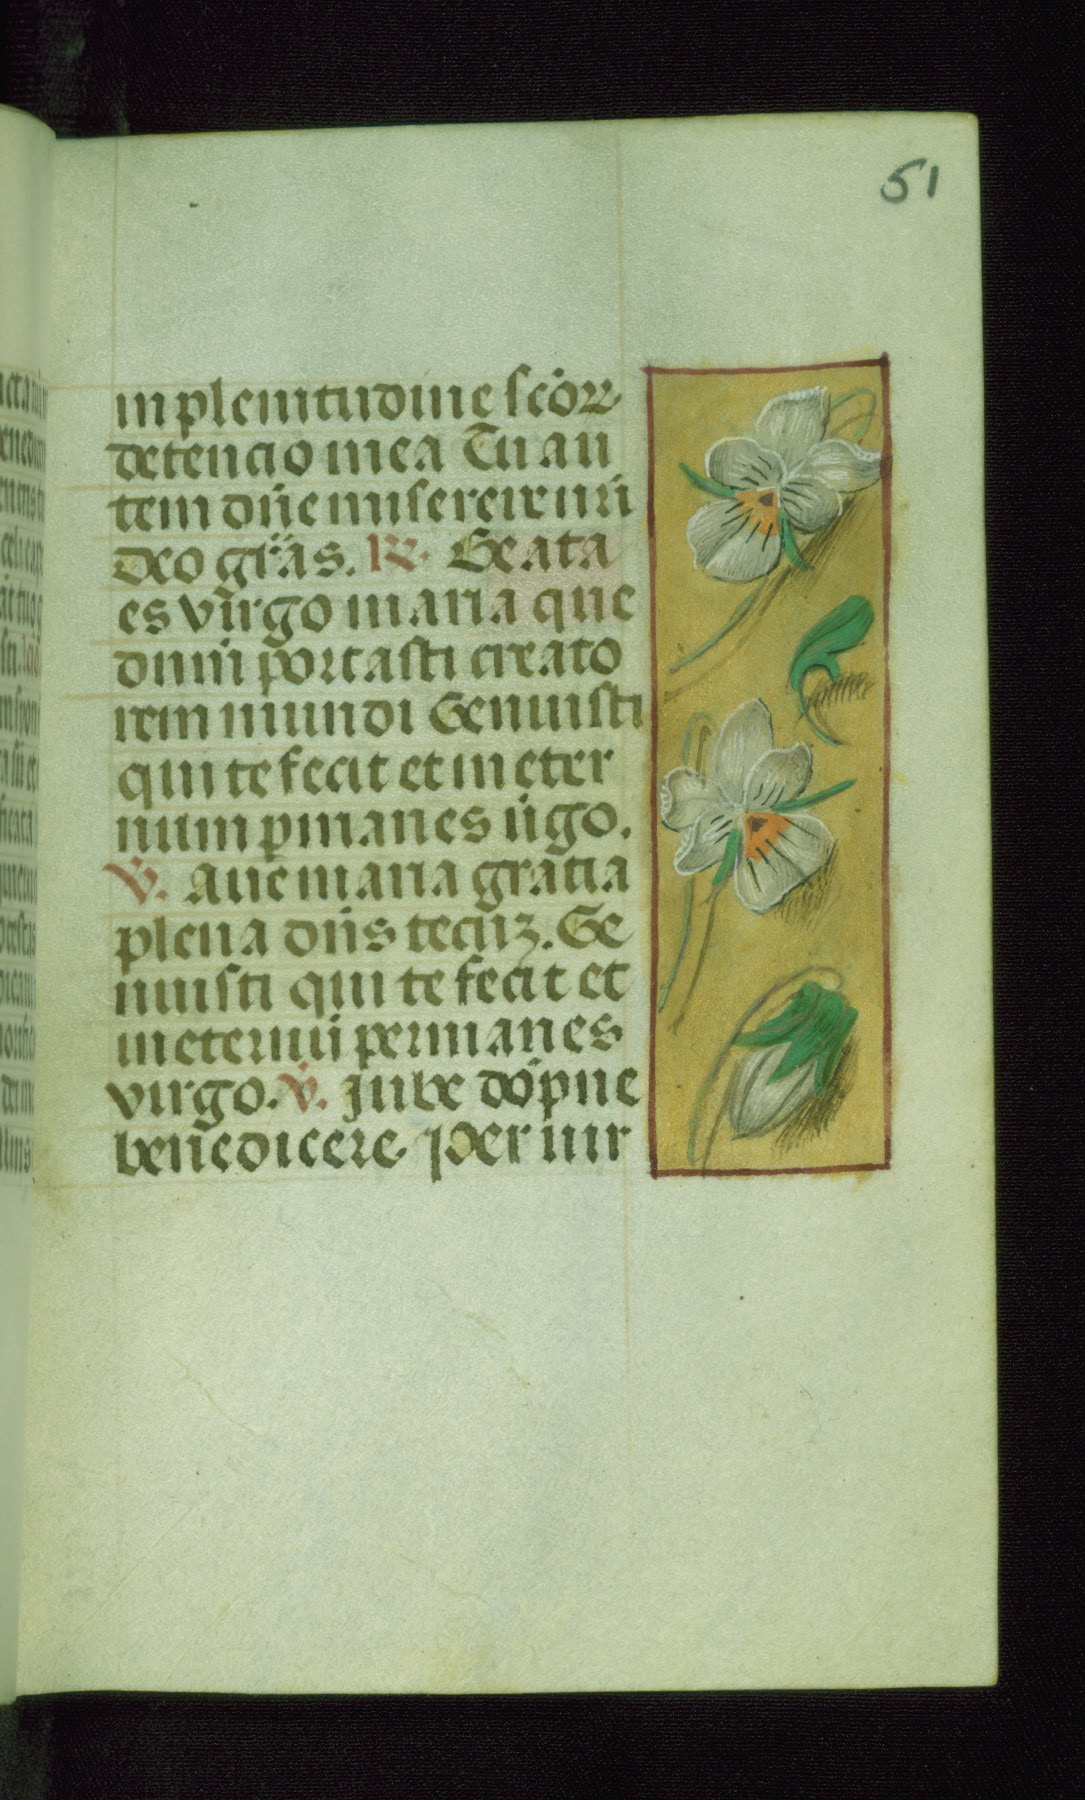 51
in plenitudine scōꝝ
detencio mea Tu au
tem dn̄e misereire nr̄i
deo gr̄as. ℟. Beata
es virgo maria que
dnm̄ portasti creato
rem mundi Genuisti
qui te fecit et in eter
num pmanes ūgo.
℣. Aue maria gracia
plena dn̄s tecuꝫ. Ge
nuisti qui te fecit et
in eternū permanes
virgo. ℣. Jube dōpne
benedicere Per uir